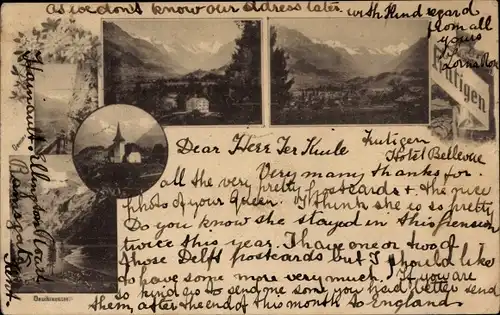 as we don't know our address later with Kind regard
from all
yours
Frutigen
Dear Herr Ter Kuile Frutigen
Hotel Bellevue
Very many thanks for
all the very pretty postcards & the nice
photo of your Queen. I think she is so pretty
Do you know she stayed in this pension
twice this year. I have one or two of
those Delft postcards but I should like
to have some more very much. If you are
so kind as to send me son you had better send
them, after the end of this month to England
Hainault Ellington Road
Ramsgate
Kent.